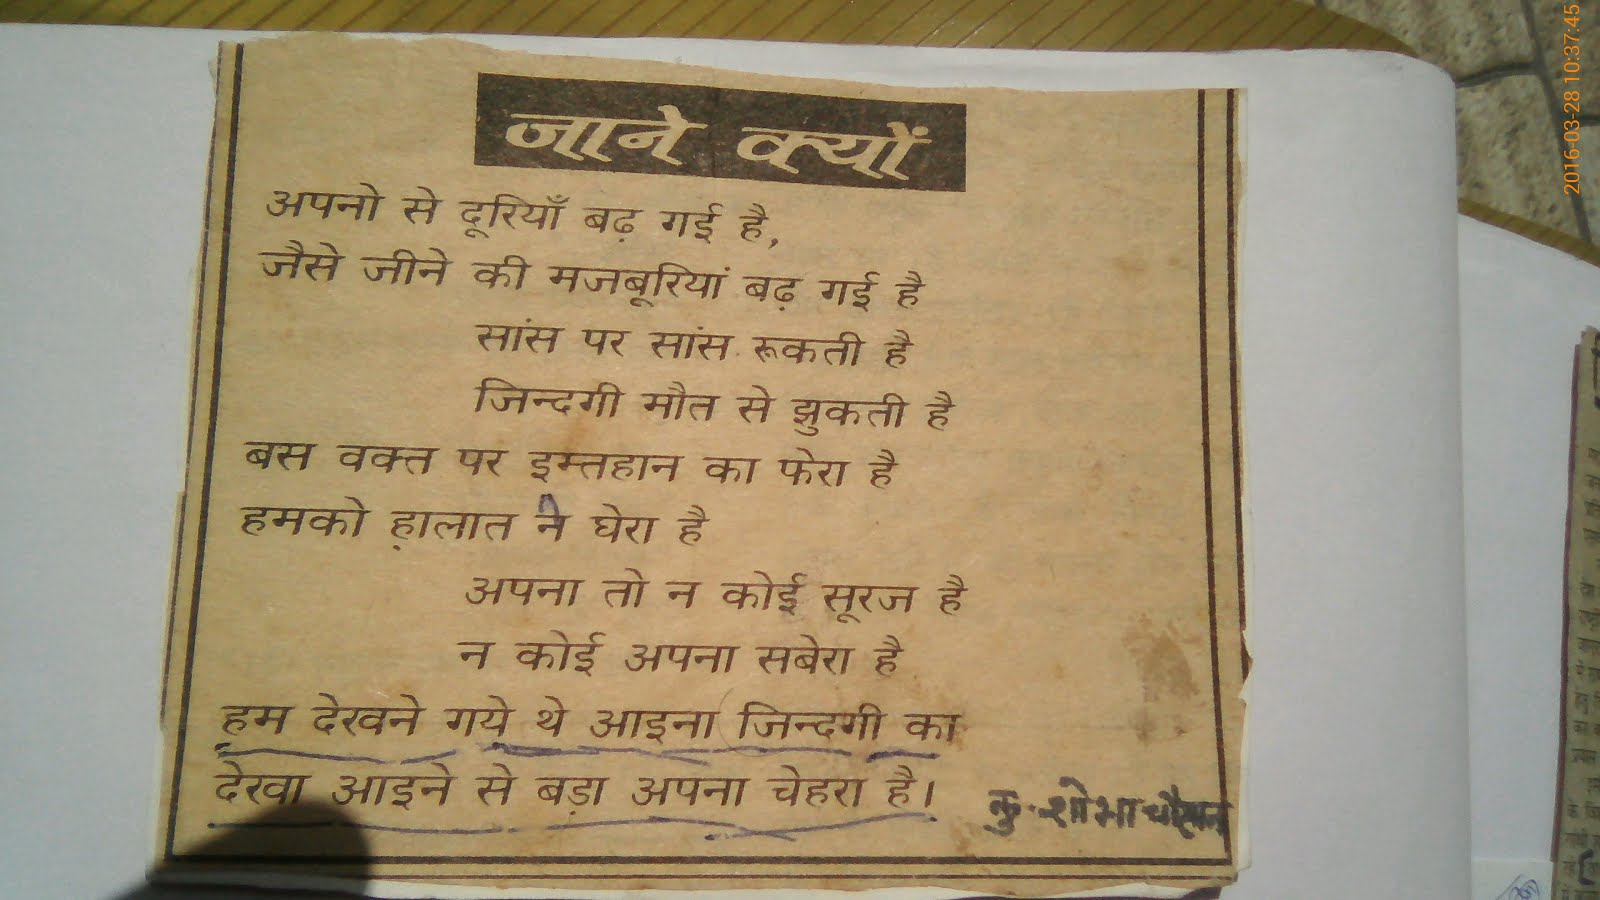 जाने क्यों
अपनो से दूरियाँ बढ़ गई है,
जैसे जीने की मजबूरियां बढ़ गई है
सांस पर सांस रूकती है
जिन्दगी मौत से झुकती है
बस वक्त पर इम्तहान का फेरा है
हमको ह़ालात ने घेरा है
अपना तो न कोई सूरज है
न कोई अपना सबेरा है
हम देखने गये थे आइना जिन्दगी का
देखा आइने से बड़ा अपना चेहरा है।
कु. शोभा चौहान
2016-03-28 10:37:45